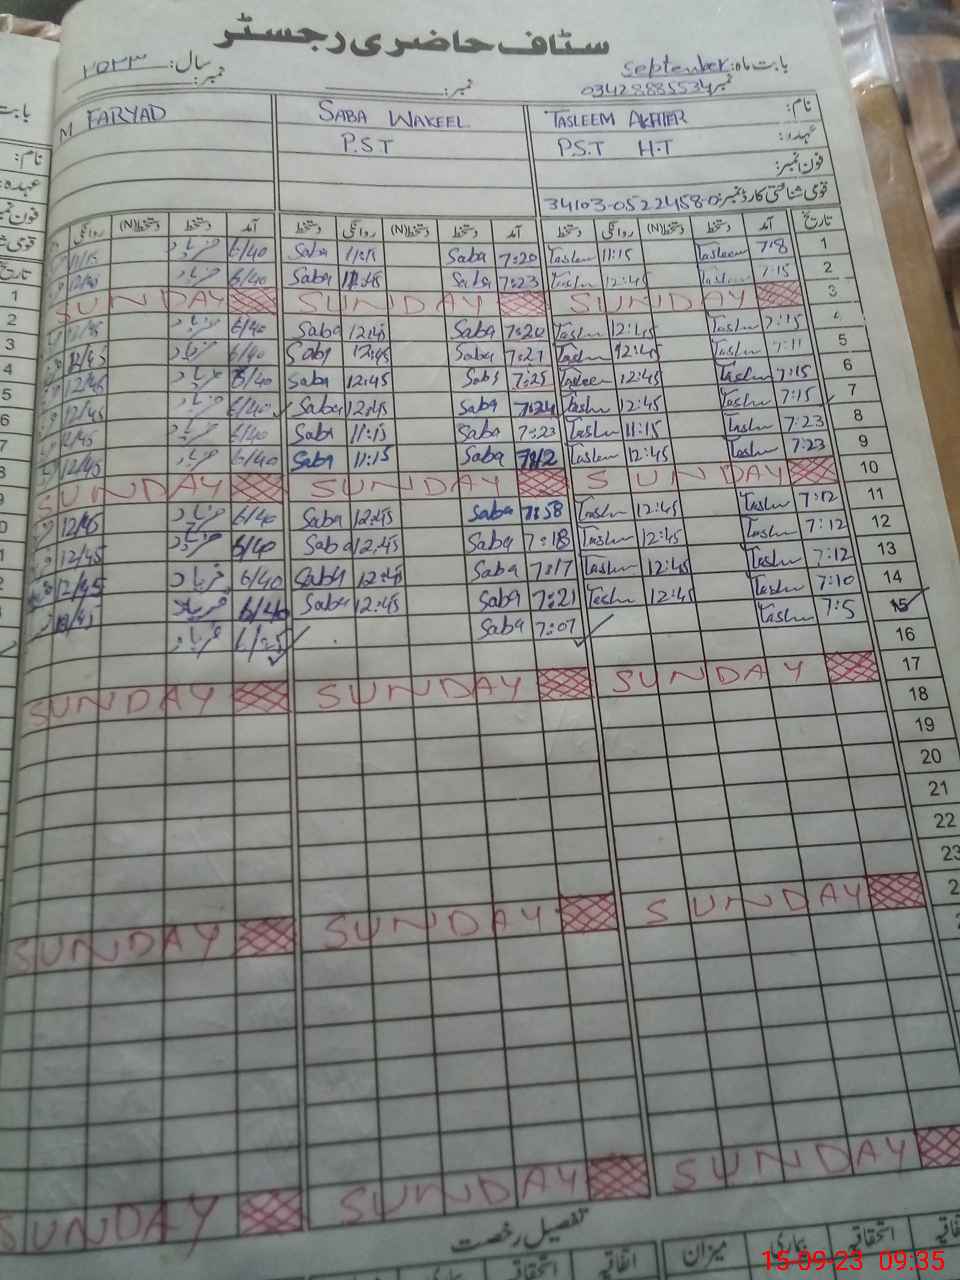 سٹاف حاضری رجسٹر
بابت ماہ: September سال: ۲۰۲۳
نمبر 03428885534 نمبر: نمبر:
نام: TASLEEM AKHTER SABA WAKEEL M FARYAD
عہدہ: P.S.T H.T P.S.T
فون نمبر:
قومی شناختی کارڈ نمبر: 34103-0522458-0
تاریخ آمد دستخط دستخط(N) روانگی دستخط آمد دستخط دستخط(N) روانگی دستخط آمد دستخط دستخط(N) روانگی
1 7:8 Tasleem 11:15 Taslem 7:20 Saba 11:15 Saba 6/40 فریاد 11/15
2 7:15 Tasleem 12:45 Taslem 7:23 Saba 11:45 Saba 6/40 فریاد 12/45
3 SUNDAY SUNDAY SUNDAY
4 7:15 Taslem 12:45 Taslem 7:20 Saba 12:45 Saba 6/40 فریاد 12/45
5 7:11 Taslem 12:45 Taslem 7:21 Saba 12:45 Saba 6/40 فریاد 12/45
6 7:15 Taslem 12:45 Tasleem 7:25 Saba 12:45 Saba 6/40 فریاد 12/45
7 7:15 Taslem 12:45 Taslem 7:24 Saba 12:45 Saba 6/40 فریاد 12/45
8 7:23 Taslem 11:15 Taslem 7:23 Saba 11:15 Saba 6/40 فریاد 12/45
9 7:23 Taslem 12:45 Taslem 7:12 Saba 11:15 Saba 6/40 فریاد 12/45
10 SUNDAY SUNDAY SUNDAY
11 7:12 Taslem 12:45 Taslem 7:58 Saba 12:45 Saba 6/40 فریاد 12/45
12 7:12 Taslem 12:45 Taslem 7:18 Saba 12:45 Saba 6/40 فریاد 12/45
13 7:12 Taslem 12:45 Taslem 7:17 Saba 12:45 Saba 6/40 فریاد 12/45
14 7:10 Taslem 12:45 Taslem 7:21 Saba 12:45 Saba 6/40 فریاد 12/45
15 7:5 Taslem 7:07 Saba 6/25 فریاد
16
17 SUNDAY SUNDAY SUNDAY
18
19
20
21
22
23
SUNDAY SUNDAY SUNDAY
SUNDAY SUNDAY SUNDAY
تفصیل رخصت
اتفاقیہ استحقاقیہ بیماری میزان اتفاقیہ استحقاقیہ بیماری
15-09-23 09:35